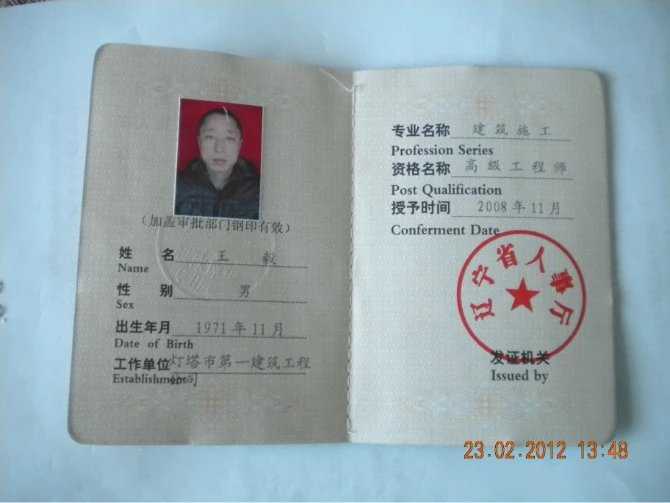 (加盖审批部门钢印有效)
姓 名 王 毅
Name
性 别 男
Sex
出生年月 1971年11月
Date of Birth
工作单位 灯塔市第一建筑工程
Establishment 公司
专业名称 建筑施工
Profession Series
资格名称 高级工程师
Post Qualification
授予时间 2008年11月
Conferment Date
辽宁省人事厅
发证机关
Issued by
23.02.2012 13:48